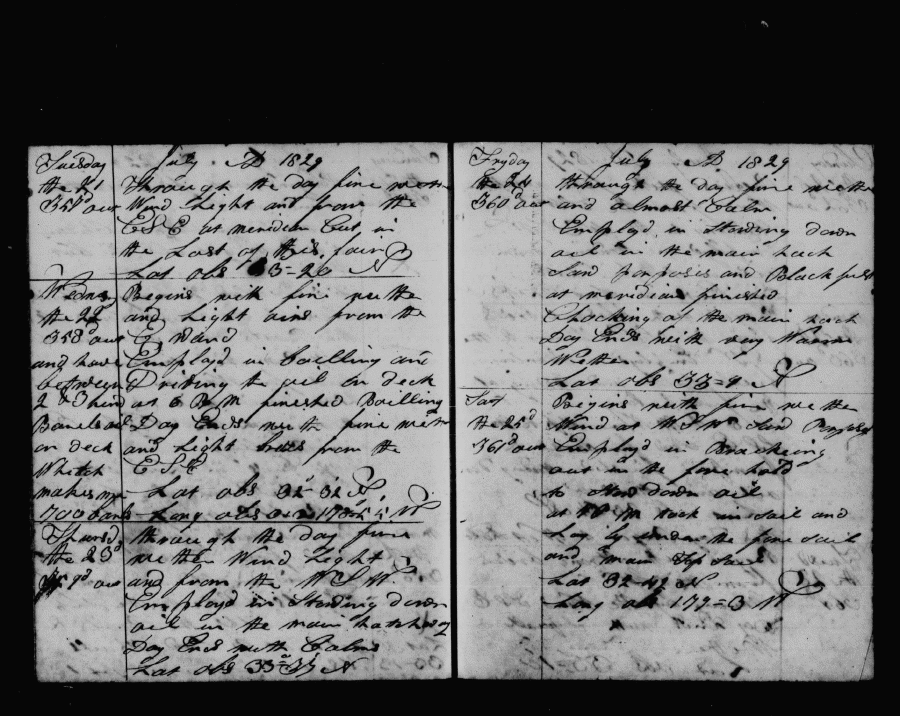 Tuesday
the 21
357d out
July AD 1829
through the day fine wether
Wind Light and from the
ESE at meridian Cut in
the Last of this fair
Lat obs 33=20 N
Wedns
the 22
358d out
and have
between
2 & 3 hund
Barels oil
on deck
Which
makes
1700 barls
Begins with fine wether
and Light airs from the
E Ward
Employd in boilling and
Driving the oil on deck
at 6 PM finished Boilling
Day Ends with fine wether
and Light from the
ESE
Lat obs 32=32 N
Long obs 178 W
Thursd
the 23d
359d out
through the day fine
wether Wind Light
and from the WSW
Employd in Stowing down
oil in the main hatchway
Day Ends with Calms
Lat obs 33 N
Fryday
the 24
360d out
July AD 1829
through the day fine wether
and almost Calm
Employd in Stowing down
oil in the main hach
Sind porposes and Black fish
at meridian finished
Chocking of the main hach
Day Ends with very Warm
Wether
Lat obs 33=9 N
Sat
the 25d
361d out
Begins with fine wether
Wind at WSW Sind
Employd in Breaking
out in the fore hold
to Stow down oil
at PM took in sail and
Lay by under the fore sail
and main Top Sail
Lat 32=49 N
Long obs 179=3 W